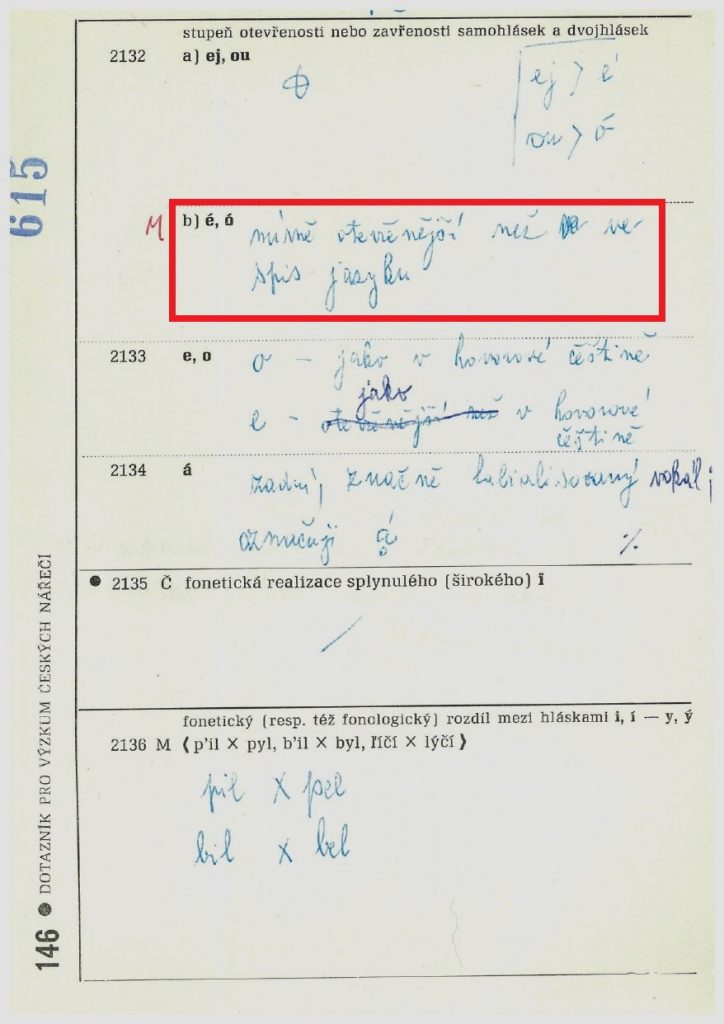 stupeň otevřenosti nebo zavřenosti samohlásek a dvojhlásek
2132 a) ej, ou
ej > é
ou > ó
615
M b) é, ó mírně otevěnější než ve
spis jazyku
2133 e, o o – jako v hovorové češtině
jako
e – otevěnější než v hovorové
češtině
2134 á zadní, značně labialisovaný vokál;
označuji å
%
● 2135 Č fonetická realizace splynulého (širokého) i
/
fonetický (resp. též fonologický) rozdíl mezi hláskami i, í — y, ý
2136 M (p'il × pyl, b'il × byl, říčí × lýčí)
pil × pel
bil × bel
146 ● DOTAZNÍK PRO VÝZKUM ČESKÝCH NÁŘEČÍ